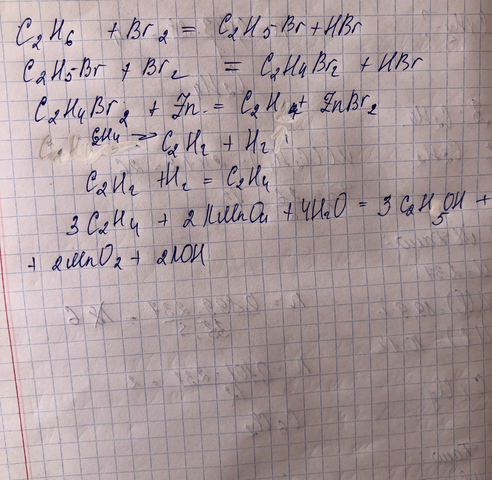 C2H6 + Br2 = C2H5Br + HBr
C2H5Br + Br2 = C2H4Br2 + HBr
C2H4Br2 + Zn = C2H4 + ZnBr2
C2H4 → C2H2 + H2
C2H2 + H2 = C2H4
3C2H4 + 2KMnO4 + 4H2O = 3C2H5OH +
+ 2MnO2 + 2KOH